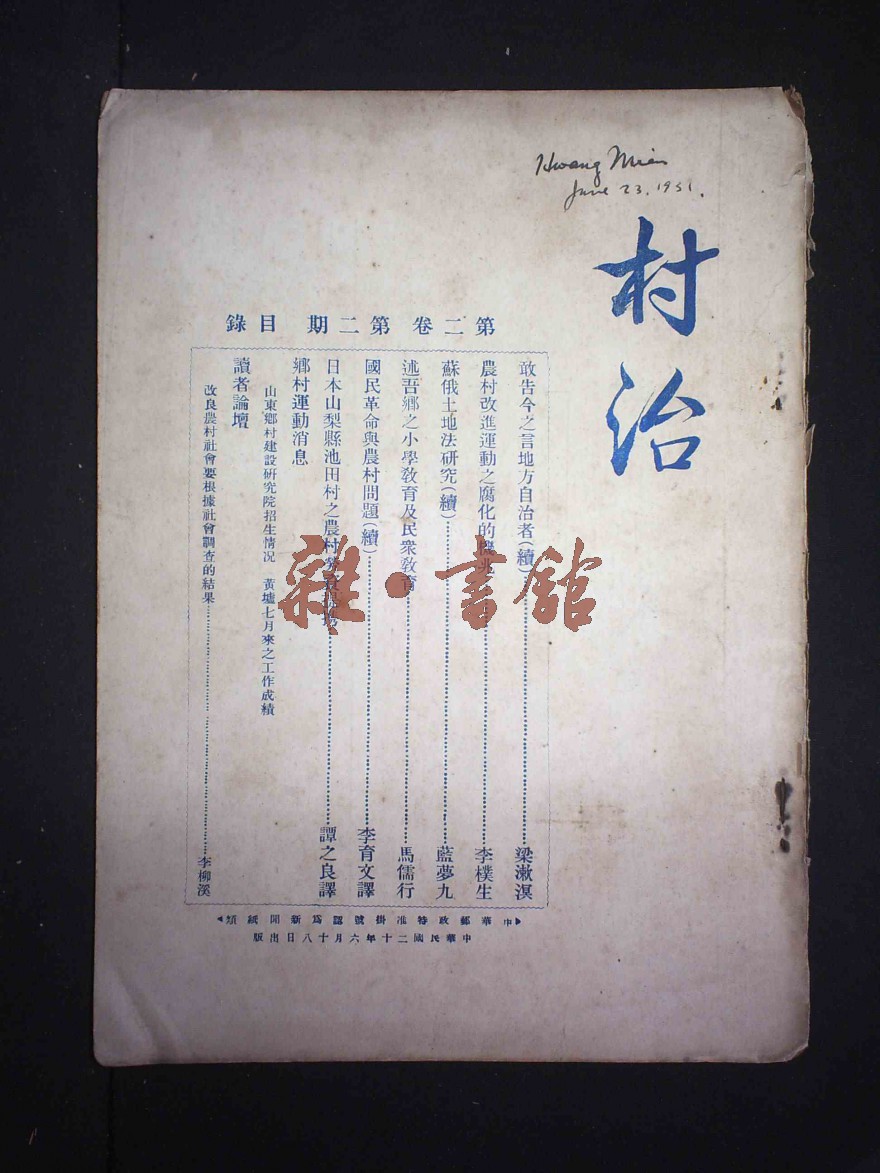 Hwang Mien
June 23, 1931.
村治
第二卷 第二期 目錄
敢告今之言地方自治者(續)……梁漱溟
農村改進運動之腐化的……李樸生
蘇俄土地法研究(續)……藍夢九
述吾鄉之小學教育及民衆教育……馬儒行
國民革命與農村問題(續)……李育文譯
日本山梨縣池田村之農村……譚之良譯
鄉村運動消息
山東鄉村建設研究院招生情况 黃墟七月來之工作成績
讀者論壇
改良農村社會要根據社會調查的結果……李柳溪
中華郵政特准掛號認爲新聞紙類
中華民國二十年六月十八日出版
雜·書館